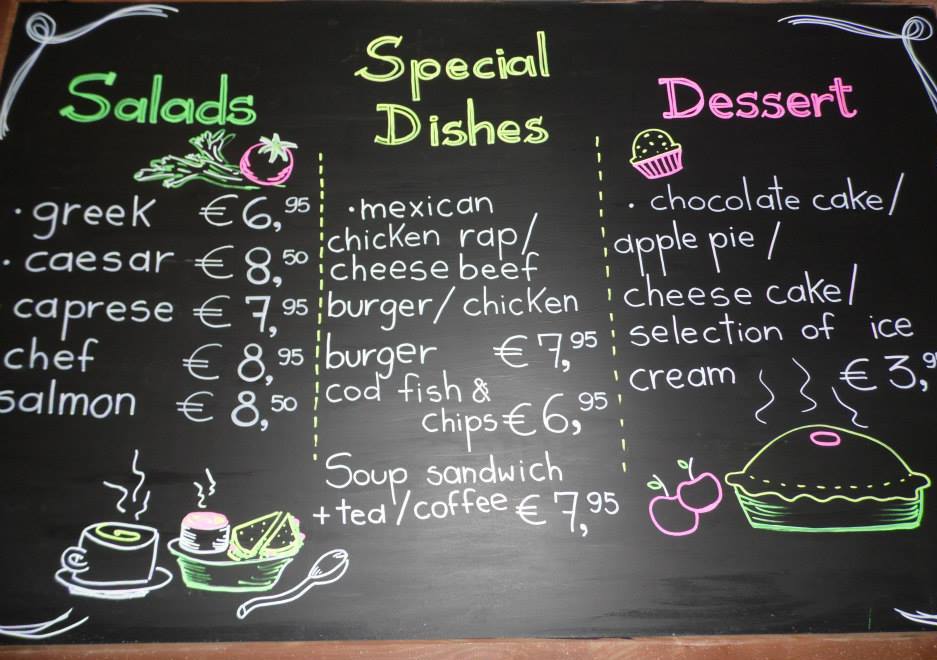 Salads
· greek € 6,95
· caesar € 8,50
caprese € 7,95
chef € 8,95
salmon € 8,50
Special
Dishes
· mexican
chicken rap/
cheese beef
burger/ chicken
burger € 7,95
cod fish &
chips € 6,95
Soup sandwich
+ tea/coffee € 7,95
Dessert
· chocolate cake/
apple pie /
cheese cake/
selection of ice
cream € 3,9